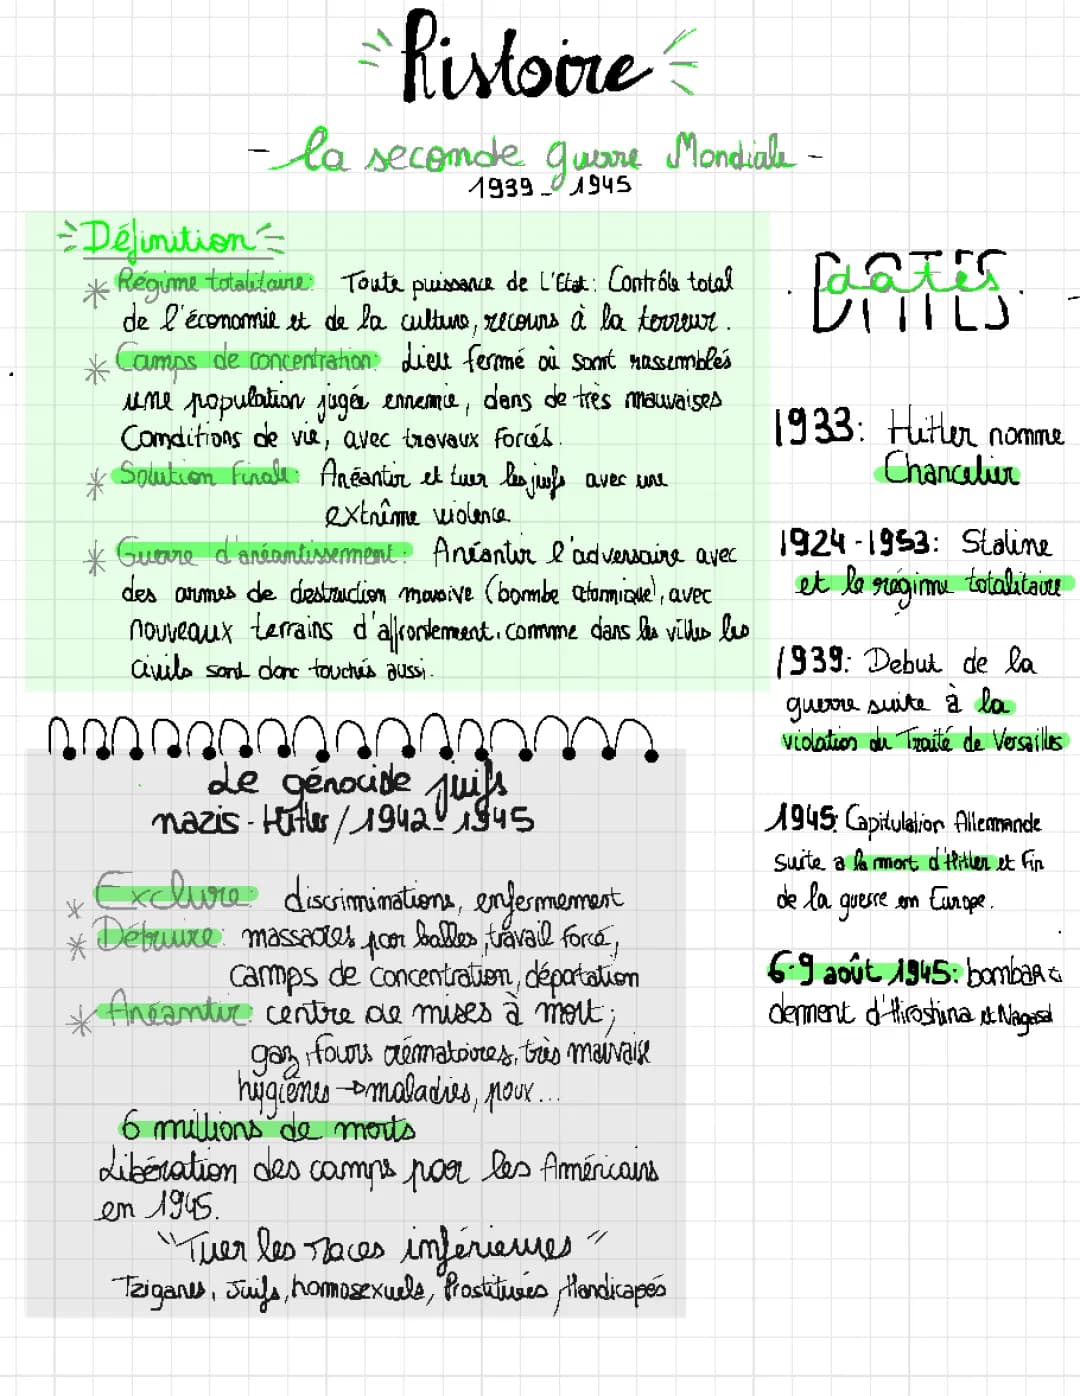 histoire
- la seconde guerre Mondiale -
1939 - 1945
Définition
* Régime totalitaire: Toute puissance de l'Etat: Contrôle total
de l'économie et de la culture, recours à la terreur.
* Camps de concentration: lieu fermé où sont rassemblés
une population jugée ennemie, dans de très mauvaises
Conditions de vie, avec travaux forcés.
* Solution Finale: Anéantir et tuer les juifs avec une
extrême violence
* Guerre d'anéantissement: Anéantir l'adversaire avec
des armes de destruction massive (bombe atomique), avec
nouveaux terrains d'affrontement. comme dans les villes les
civils sont donc touchés aussi.
Le génocide juifs
nazis - Hitler / 1942 - 1945
* Exclure: discriminations, enfermement
* Détruire: massacres par balles, travail forcé,
camps de concentration, déportation
* Anéantir: centre de mises à mort;
gaz, fours crématoires, très mauvaise
hygiènes → maladies, poux...
6 millions de morts
Libération des camps par les Américains
en 1945.
"Tuer les races inférieures"
Tziganes, Juifs, homosexuels, Prostituées, Handicapés
dates
1933: Hitler nomme
Chancelier
1924-1953: Staline
et le régime totalitaire
1939: Debut de la
guerre suite à la
violation du Traité de Versailles
1945: Capitulation Allemande
suite a la mort d'Hitler et fin
de la guerre en Europe.
6-9 août 1945: bombar
dement d'Hiroshima et Nagasa